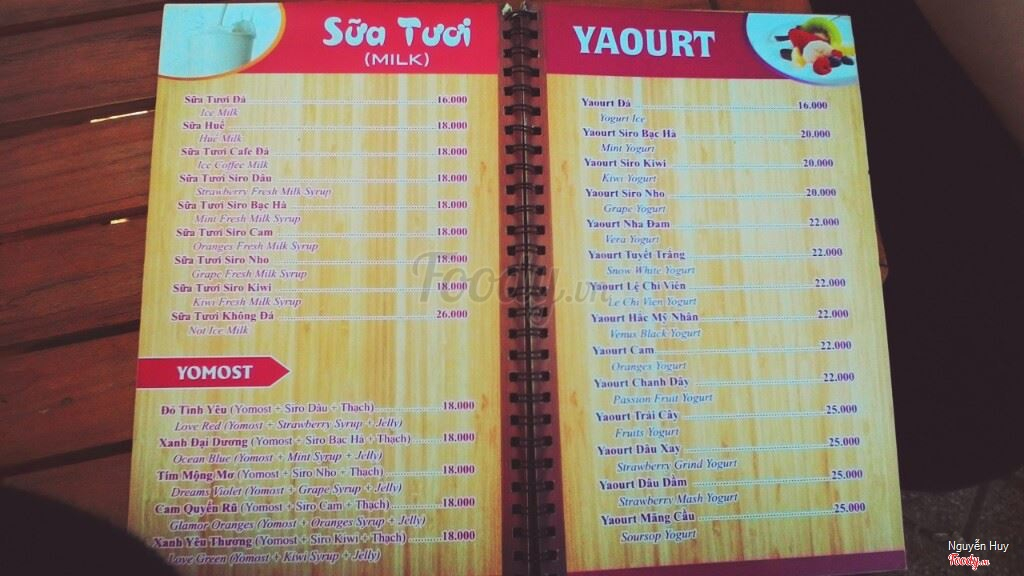 Sữa Tươi
(MILK)
Sữa Tươi Đá 16.000
Ice Milk
Sữa Huế 18.000
Huế Milk
Sữa Tươi Cafe Đá 18.000
Ice Coffee Milk
Sữa Tươi Siro Dâu 18.000
Strawberry Fresh Milk Syrup
Sữa Tươi Siro Bạc Hà 18.000
Mint Fresh Milk Syrup
Sữa Tươi Siro Cam 18.000
Oranges Fresh Milk Syrup
Sữa Tươi Siro Nho 18.000
Grape Fresh Milk Syrup
Sữa Tươi Siro Kiwi 18.000
Kiwi Fresh Milk Syrup
Sữa Tươi Không Đá 26.000
Not Ice Milk
YOMOST
Đỏ Tình Yêu (Yomost + Siro Dâu + Thạch) 18.000
Love Red (Yomost + Strawberry Syrup + Jelly)
Xanh Đại Dương (Yomost + Siro Bạc Hà + Thạch) 18.000
Ocean Blue (Yomost + Mint Syrup + Jelly)
Tím Mộng Mơ (Yomost + Siro Nho + Thạch) 18.000
Dreams Violet (Yomost + Grape Syrup + Jelly)
Cam Quyến Rũ (Yomost + Siro Cam + Thạch) 18.000
Glamor Oranges (Yomost + Oranges Syrup + Jelly)
Xanh Yêu Thương (Yomost + Siro Kiwi + Thạch) 18.000
Love Green (Yomost + Kiwi Syrup + Jelly)
YAOURT
Yaourt Đá 16.000
Yogurt Ice
Yaourt Siro Bạc Hà 20.000
Mint Yogurt
Yaourt Siro Kiwi 20.000
Kiwi Yogurt
Yaourt Siro Nho 20.000
Grape Yogurt
Yaourt Nha Đam 22.000
Vera Yogurt
Yaourt Tuyết Trắng 22.000
Snow White Yogurt
Yaourt Lệ Chi Viên 22.000
Le Chi Vien Yogurt
Yaourt Hắc Mỹ Nhân 22.000
Venus Black Yogurt
Yaourt Cam 22.000
Oranges Yogurt
Yaourt Chanh Dây 22.000
Passion Fruit Yogurt
Yaourt Trái Cây 25.000
Fruits Yogurt
Yaourt Dâu Xay 25.000
Strawberry Grind Yogurt
Yaourt Dâu Dầm 25.000
Strawberry Mash Yogurt
Yaourt Mãng Cầu 25.000
Soursop Yogurt
Foody.vn
Nguyễn Huy
Foody.vn